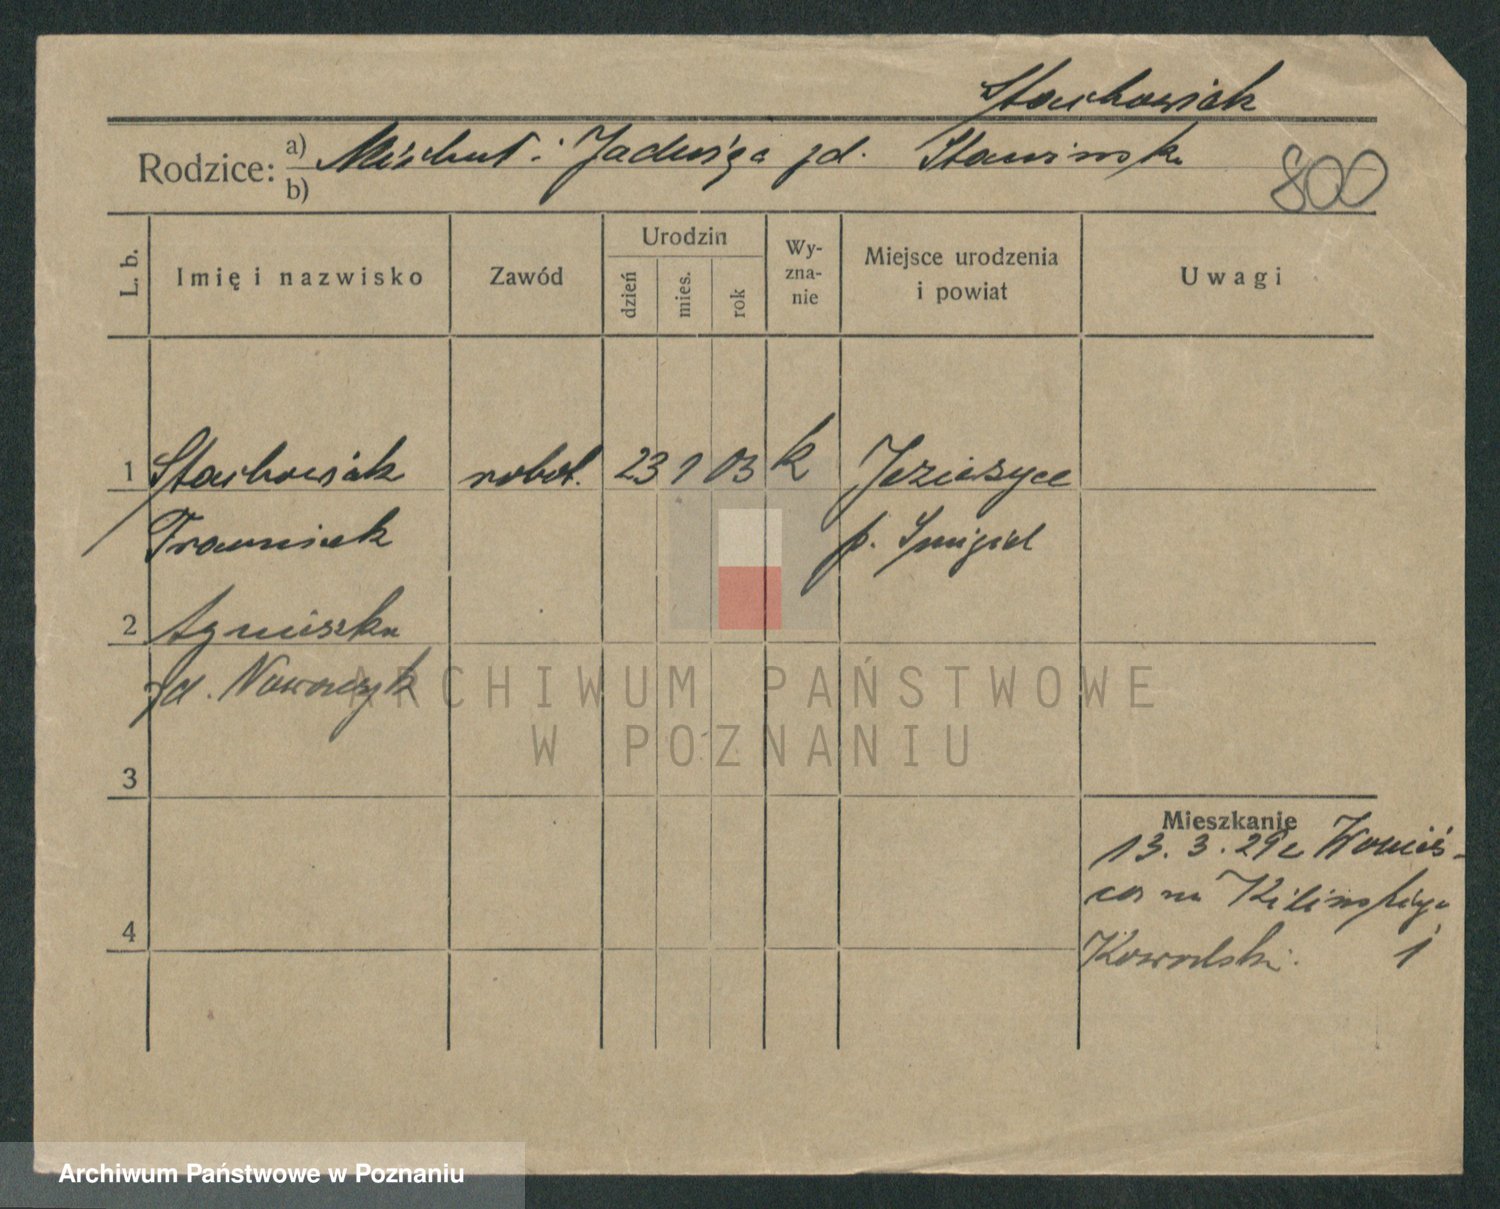 Stachowiak
Rodzice: a) Michał i Jadwiga zd. Stawińsk
b)
800
L. b.
Imię i nazwisko
Zawód
Urodzin
dzień
mies.
rok
Wy-
zna-
nie
Miejsce urodzenia
i powiat
Uwagi
1 Stachowiak robot. 23 1 03 k Jezierzyce
Franciszek p. Śmigiel
2 Agnieszka
zd. Nowaczyk
ARCHIWUM PAŃSTWOWE
W POZNANIU
3
Mieszkanie
13. 3. 29
na Kilińskiego
4
Kowalski. 1
Archiwum Państwowe w Poznaniu